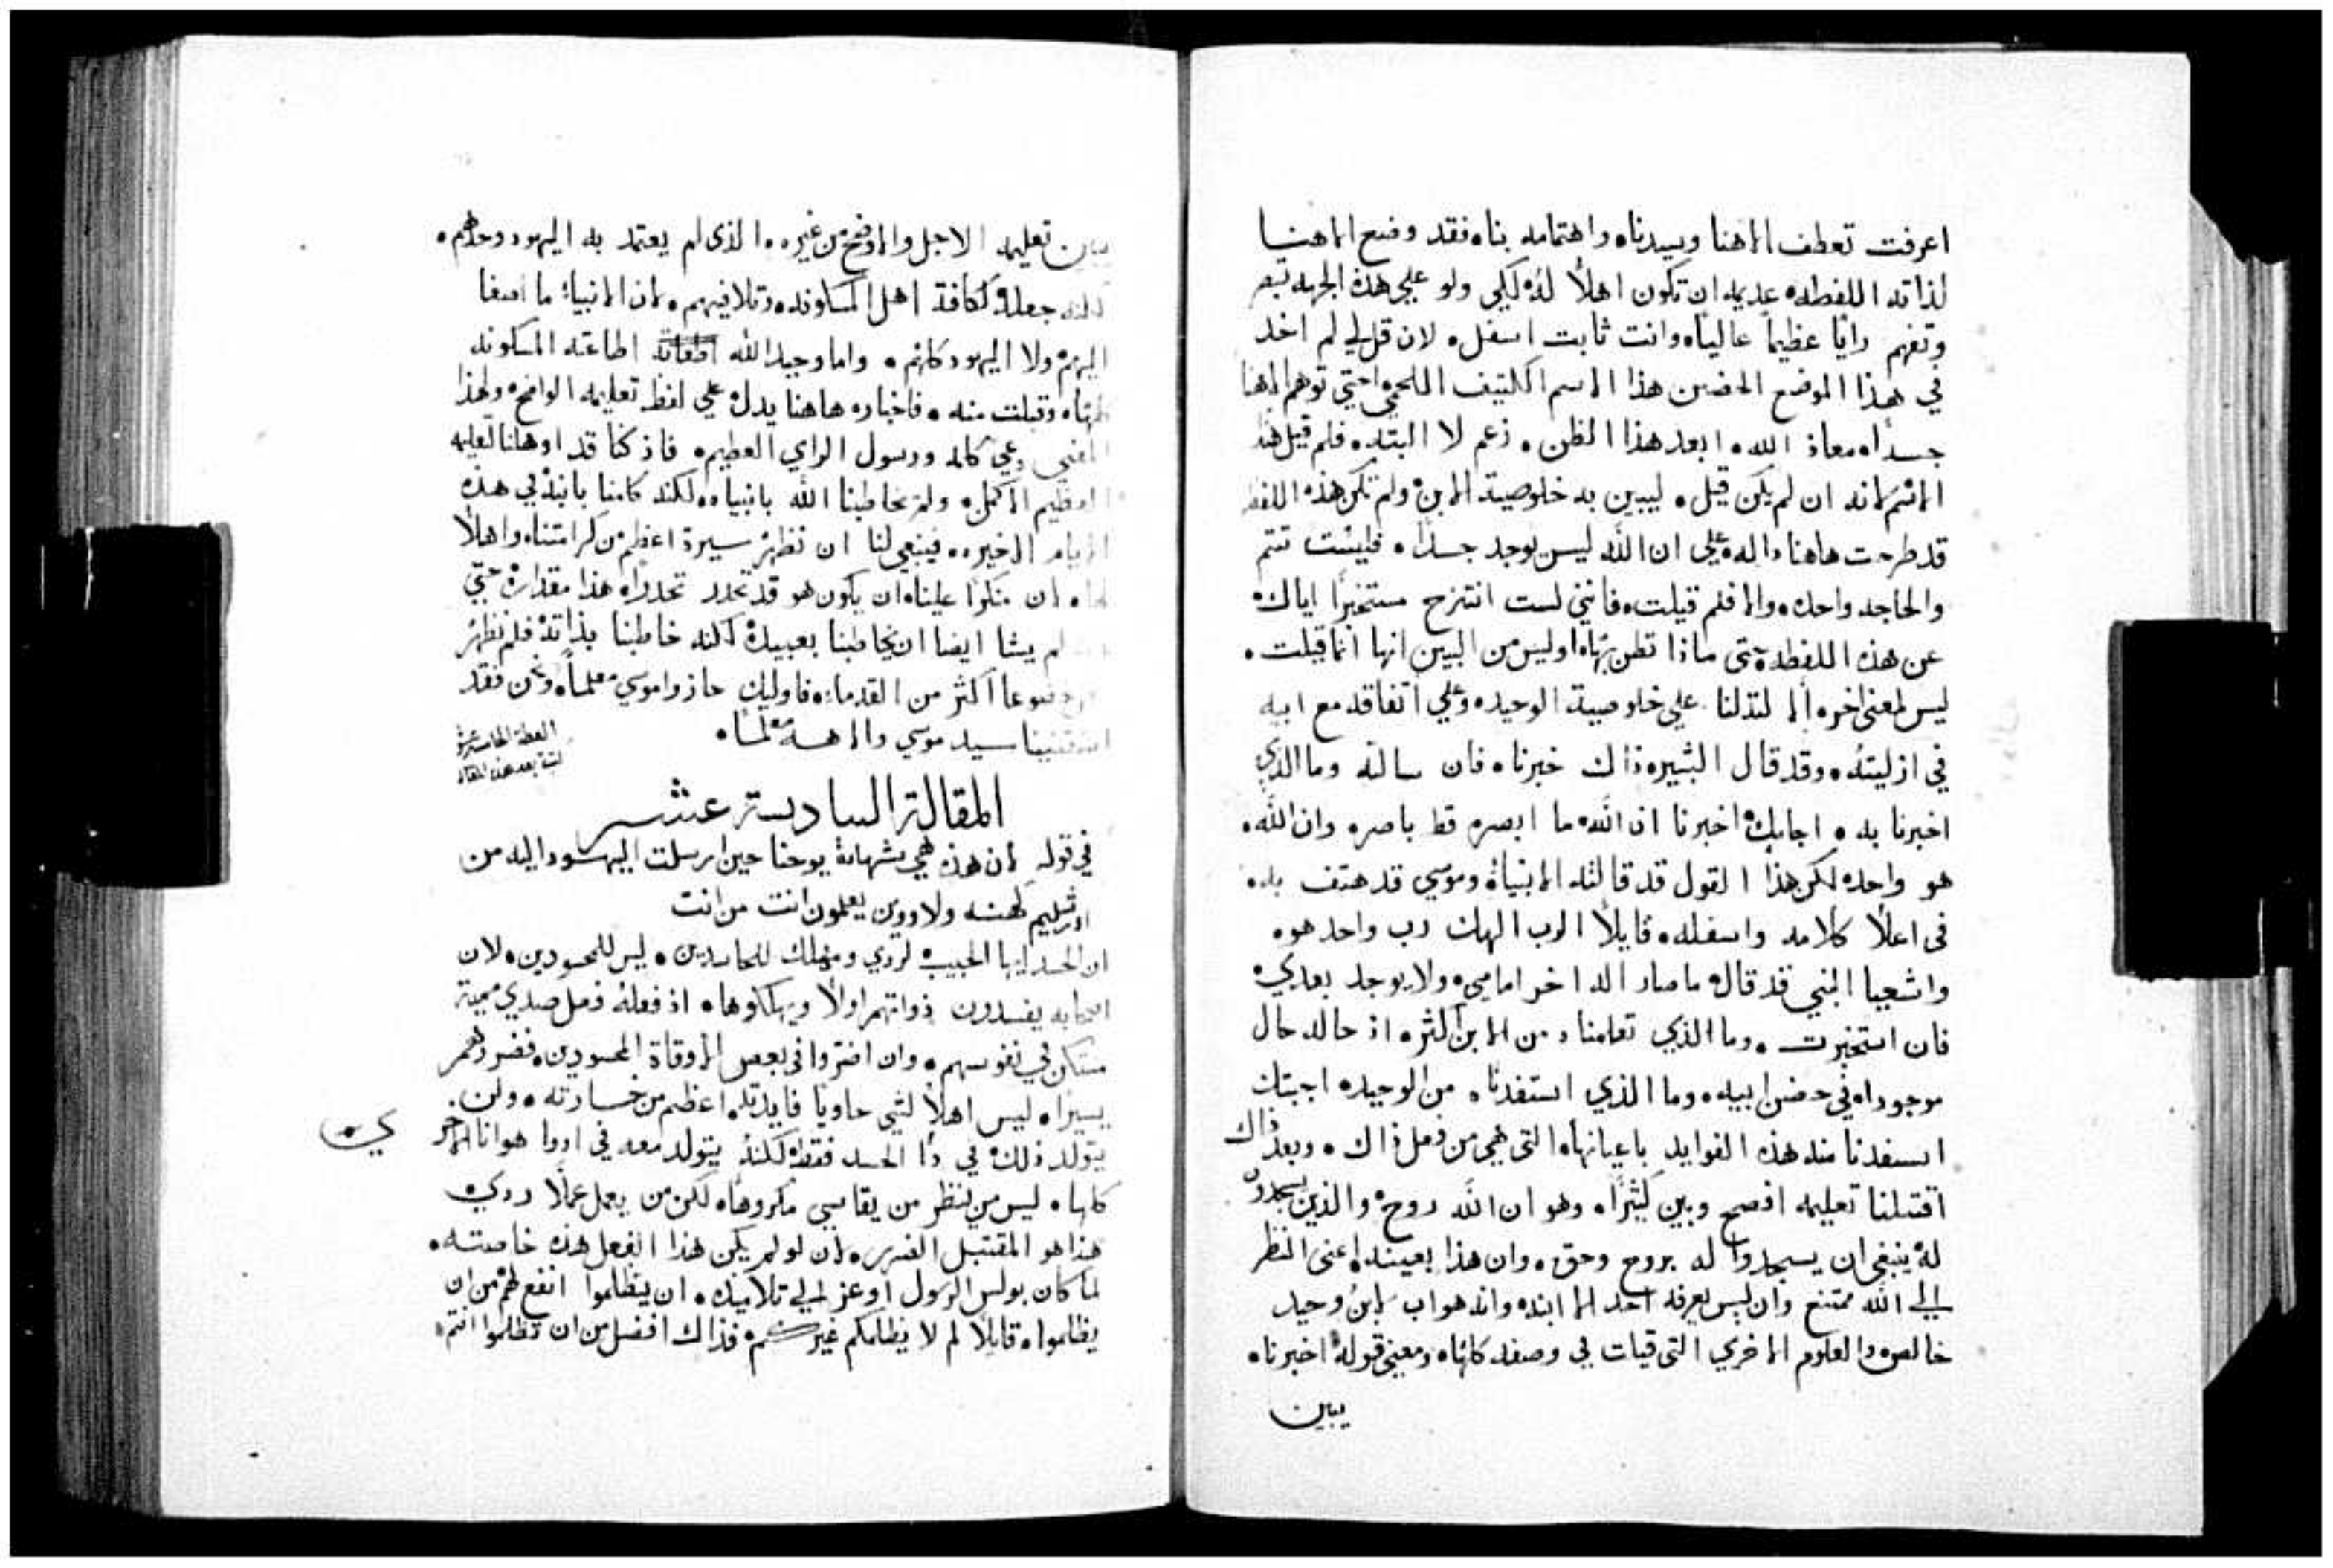 اعرفت تعطف الاهنا وسيدناه واهتمامه بناه فقد وضع الاهنا
لذاته اللفظه عديمه ان تكون اهلاً له لكي ولو علي هذه الجهه تبصر
وتفهم راياً عظيماً عالياه وانت ثابت اسفل. لان قل لي لم اخد
في هذا الموضع الحضن هذا الاسم الكثيف اللحمي احتي توهم الاهنا
جسداه معاذ الله. ابعد هذا الظن. زعم لا البته. فلم قيل هذا
الاسم لانه ان لم يكن قيل. ليبين به خلوصية الابن ولم تكن هذه اللفظه
قد طرحت هاهنا داله علي ان الله ليس يوجد جسداه فليست تتم
والحاجه واحده والا فلم قيلت. فانني لست انتزح مستخبراً اياك
عن هذه اللفظه حتي ماذا تظن بهاه اوليس من البين انها انما قيلت.
ليس لمعني اخر. الا لتدلنا علي خلوصية الوحيد. وعلي اتفاقه مع ابيه
في ازليته. وقد قال البشير ذاك خبرناه فان سالته وما الذي
اخبرنا به. اجابك اخبرنا ان الله ما ابصره قط باصره وان الله.
هو واحد. لكن هذا القول قد قالته الانبياء وموسي قد هتف به.
في اعلا كلامه واسفله. قايلاً الرب الهك رب واحد هو.
واشعيا النبي قد قال ما صار اله اخر امامي. ولا يوجد بعدي
فان استخبرت. وما الذي تعلمناه من الابن اكثر. اذ حاله حال
موجوداه في حضن ابيه. وما الذي استفدناه من الوحيد. اجبتك
استفدنا منه هذه الفوايد باعيانهاه التي هي من فعل ذاك. وبعد ذاك
اقتبلنا تعليمه افصح وبين كثيراه وهو ان الله روح والذين يسجدون
له ينبغي ان يسجدوا له بروح وحق. وان هذا بعينه اعني النظر
الي الله ممتنع وان ليس يعرفه احد الا ابنه وانه هو اب لابن وحيد
خالص والعلوم الاخري التي قيلت في وصفه كلهاه ومعني قوله اخبرناه
يبين
يبين تعليمه الاجل والاوضح من غيره. الذي لم يعتمد به اليهود وحدهم.
لكنه جعله لكافة اهل المسكونه وتلافيهم. لان الانبياء ما اصغا
اليهم ولا اليهود كلهم. واما وحيد الله اطاعته المسكونه
كلهاه وقبلت منه. فاخباره هاهنا يدل علي لفظ تعليمه الواضح ولهذا
المعني دعي كلمه ورسول الراي العظيم. فاذ كنا قد اوهلنا لتعليمه
العظيم الاكمل. ولم يخاطبنا الله بانبياه. لكنه كلمنا بابنه في هذه
الايام الاخيره. فينبغي لنا ان نظهر سيرة اعظم من كرامتناه واهلاً
لهاه لان منكراً عليناه ان يكون هو قد تحدر تحدراه هذا مقداره حتي
لم يشا ايضا ان يخاطبنا بعبيده لكنه خاطبنا بذاته. فلم نظهر
خضوعا اكثر من القدماء. فاوليك حازوا موسي معلماه ونحن فقد
اقتنينا سيد موسي والاهه معلماه.
العظة الخامسه عشر
المقالة السادسة عشر
في قوله لان هذه هي شهادة يوحنا حين ارسلت اليهود اليه من
اورشليم كهنه ولاويين يعلمون انت من انت
ان الحسد ايها الحبيب لردي ومهلك للحاسدين. ليس للمحسودين. لان
اصحابه يفسدون ذواتهم اولاً ويهلكوهاه اذ فعله فعل صدي مميت
متكن في نفوسهم. وان اضروا في بعض الاوقات المحسودين. فضررهم
يسيراه ليس اهلاً لشي حاوياً فايدته اعظم من خسارته. ولن
يتولد ذلك في دا الحسد فقط لكنه يتولد معه في ادوا هوانا الاخر
كلهاه ليس من ينظر من يقاسي مكروهاه لكن من يعمل عملاً ردي
هذا هو المقتبل الضرر. لان لو لم يكن هذا الفعل هذه خاصته.
لما كان بولس الرسول اوعز لي تلاميذه. ان يظلموا انفع لهم من ان
يظلمواه قايلاً لم لا يظلمكم غيركم فذاك افضل من ان تظلموا انتم